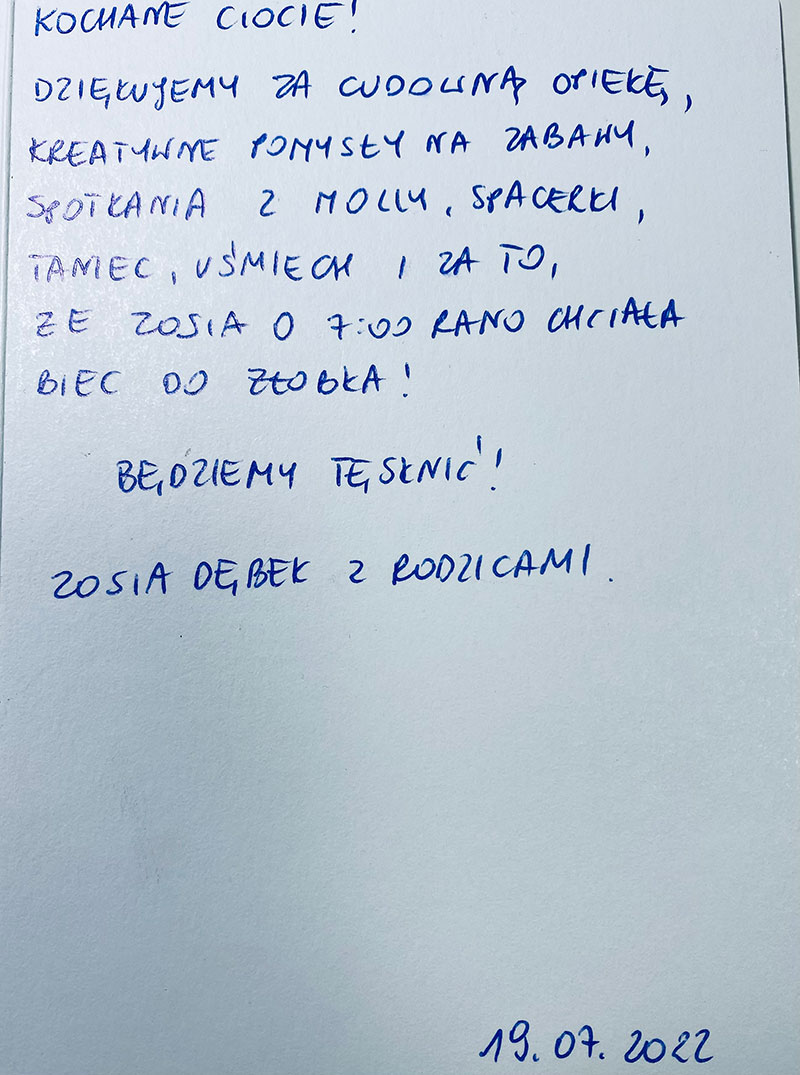 KOCHANE CIOCIE!
DZIĘKUJEMY ZA CUDOWNĄ OPIEKĘ,
KREATYWNE POMYSŁY NA ZABAWY,
SPOTKANIA Z MOLLY, SPACERKI,
TANIEC, UŚMIECH I ZA TO,
ŻE ZOSIA O 7:00 RANO CHCIAŁA
BIEC DO ŻŁOBKA!
BĘDZIEMY TĘSKNIĆ!
ZOSIA DĘBEK Z RODZICAMI.
19.07.2022